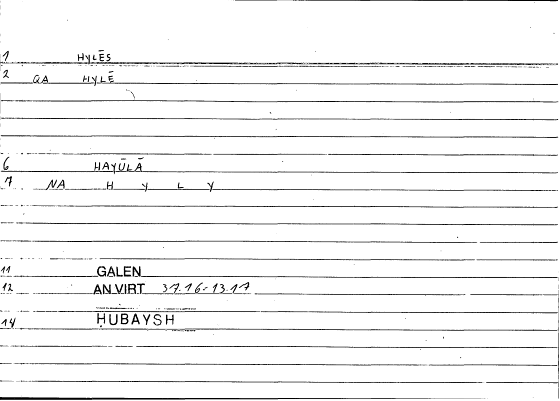 1 HYLĒS
2 QA HYLĒ
6 HAYŪLĀ
7 NA H Y L Y
11 GALEN
12 AN VIRT 37.16-13.17
14 ḤUBAYSH